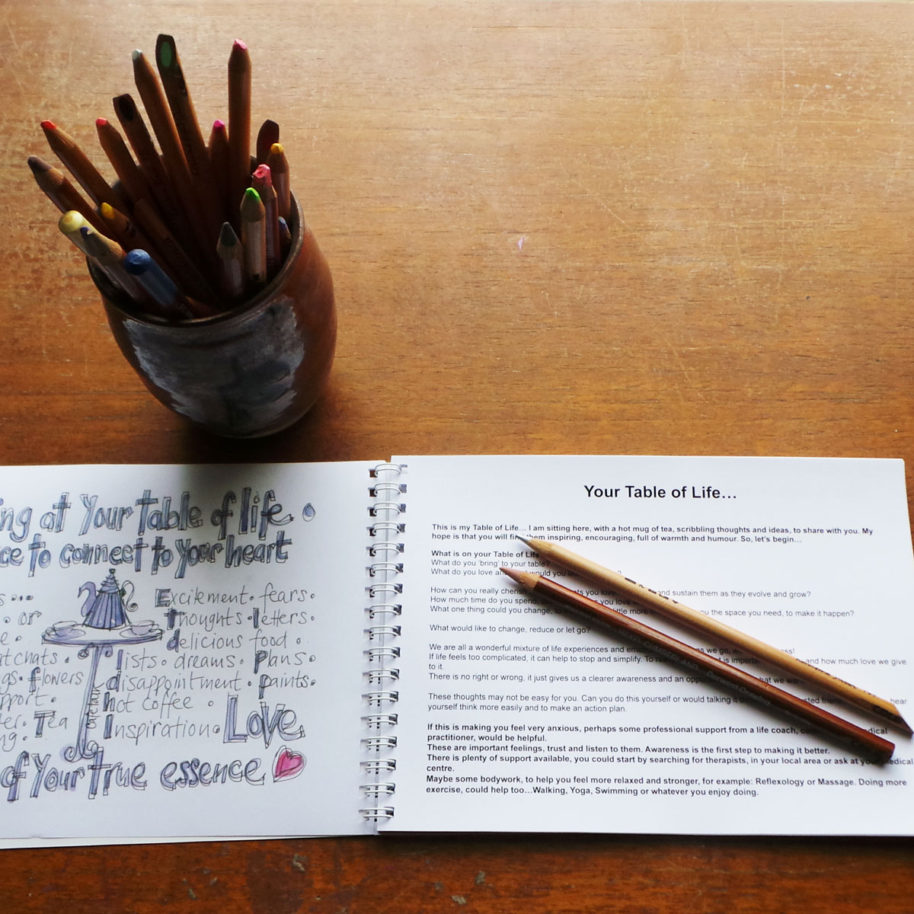 ing at Your Table of life
ce to connect to your heart
Excitement. fears.
or Thoughts. Letters.
delicious food.
itchats. lists. dreams. Plans.
gs. flowers. disappointment. Paints.
pport. hot coffee.
Tea Inspiration. Love
of Your true essence
Your Table of Life...
This is my Table of Life... I am sitting here, with a hot mug of tea, scribbling thoughts and ideas, to share with you. My
hope is that you will find them inspiring, encouraging, full of warmth and humour. So, let's begin...
What is on your Table of Life
What do you 'bring' to your table
What do you love would you
How can you really you love and sustain them as they evolve and grow?
How much time do you spend you love
What one thing could you change, to time more you the space you need, to make it happen?
What would like to change, reduce or let go?
We are all a wonderful mixture of life experiences and we go,
If life feels too complicated, it can help to stop and simplify. To is important and how much love we give
to it.
There is no right or wrong, it just gives us a clearer awareness and an what we
These thoughts may not be easy for you. Can you do this yourself or would talking them hear
yourself think more easily and to make an action plan.
If this is making you feel very anxious, perhaps some professional support from a life coach, medical
practitioner, would be helpful.
These are important feelings, trust and listen to them. Awareness is the first step to making it better.
There is plenty of support available, you could start by searching for therapists, in your local area or ask at your medical
centre.
Maybe some bodywork, to help you feel more relaxed and stronger, for example: Reflexology or Massage. Doing more
exercise, could help too...Walking, Yoga, Swimming or whatever you enjoy doing.